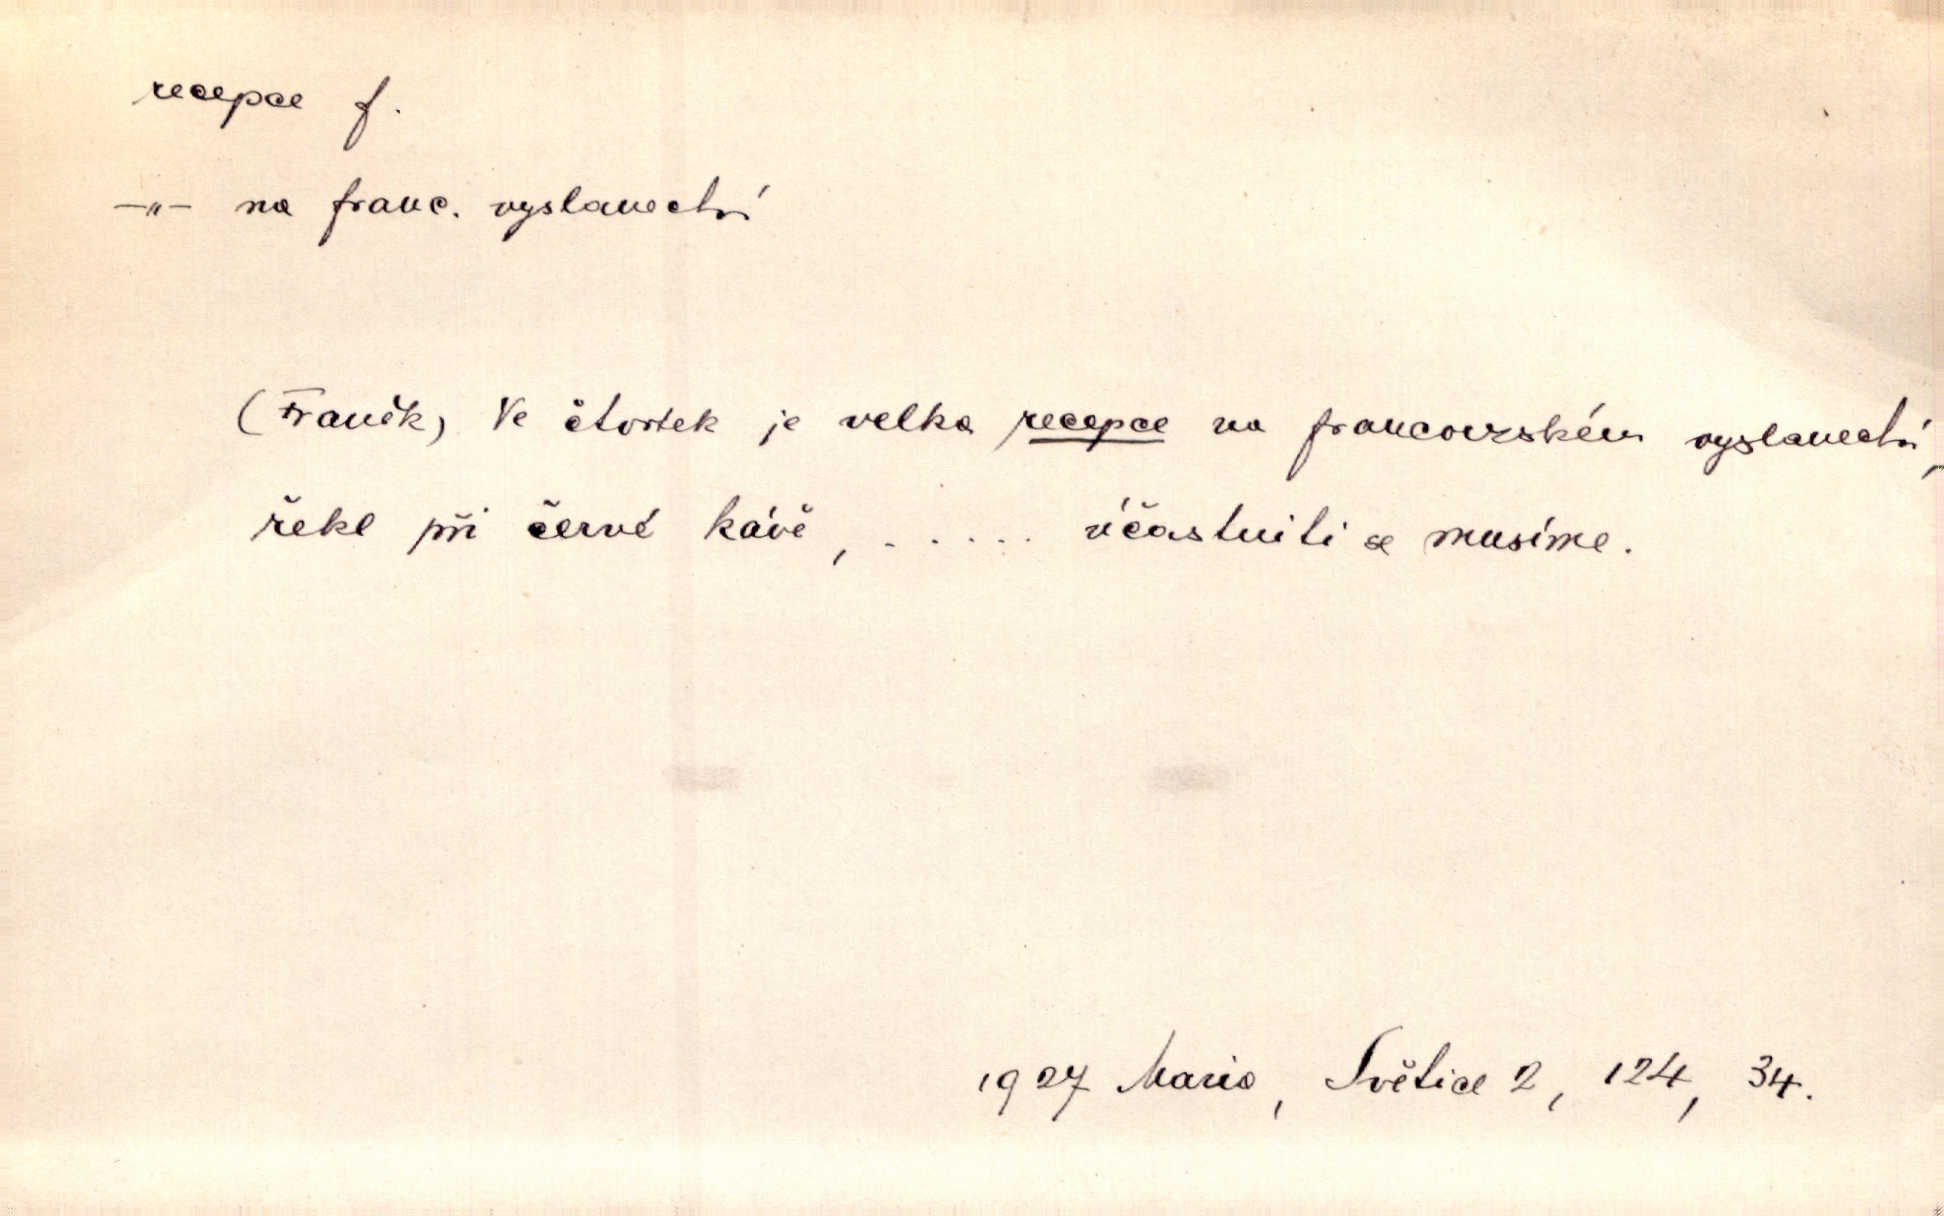 recepce f.
—„— na franc. vyslanectví
(Franěk) Ve čtvrtek je velká recepce na francouzském vyslanectví,
řekl při černé kávě, . . . . . . účastniti se musíme.
1927 Maria, Světice 2, 124, 34.